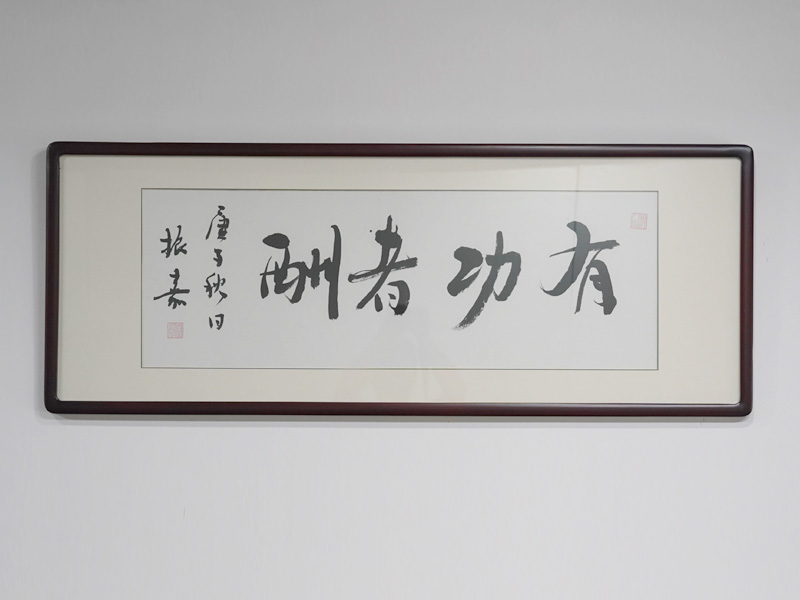 有功者酬
庚子秋日
振嘉